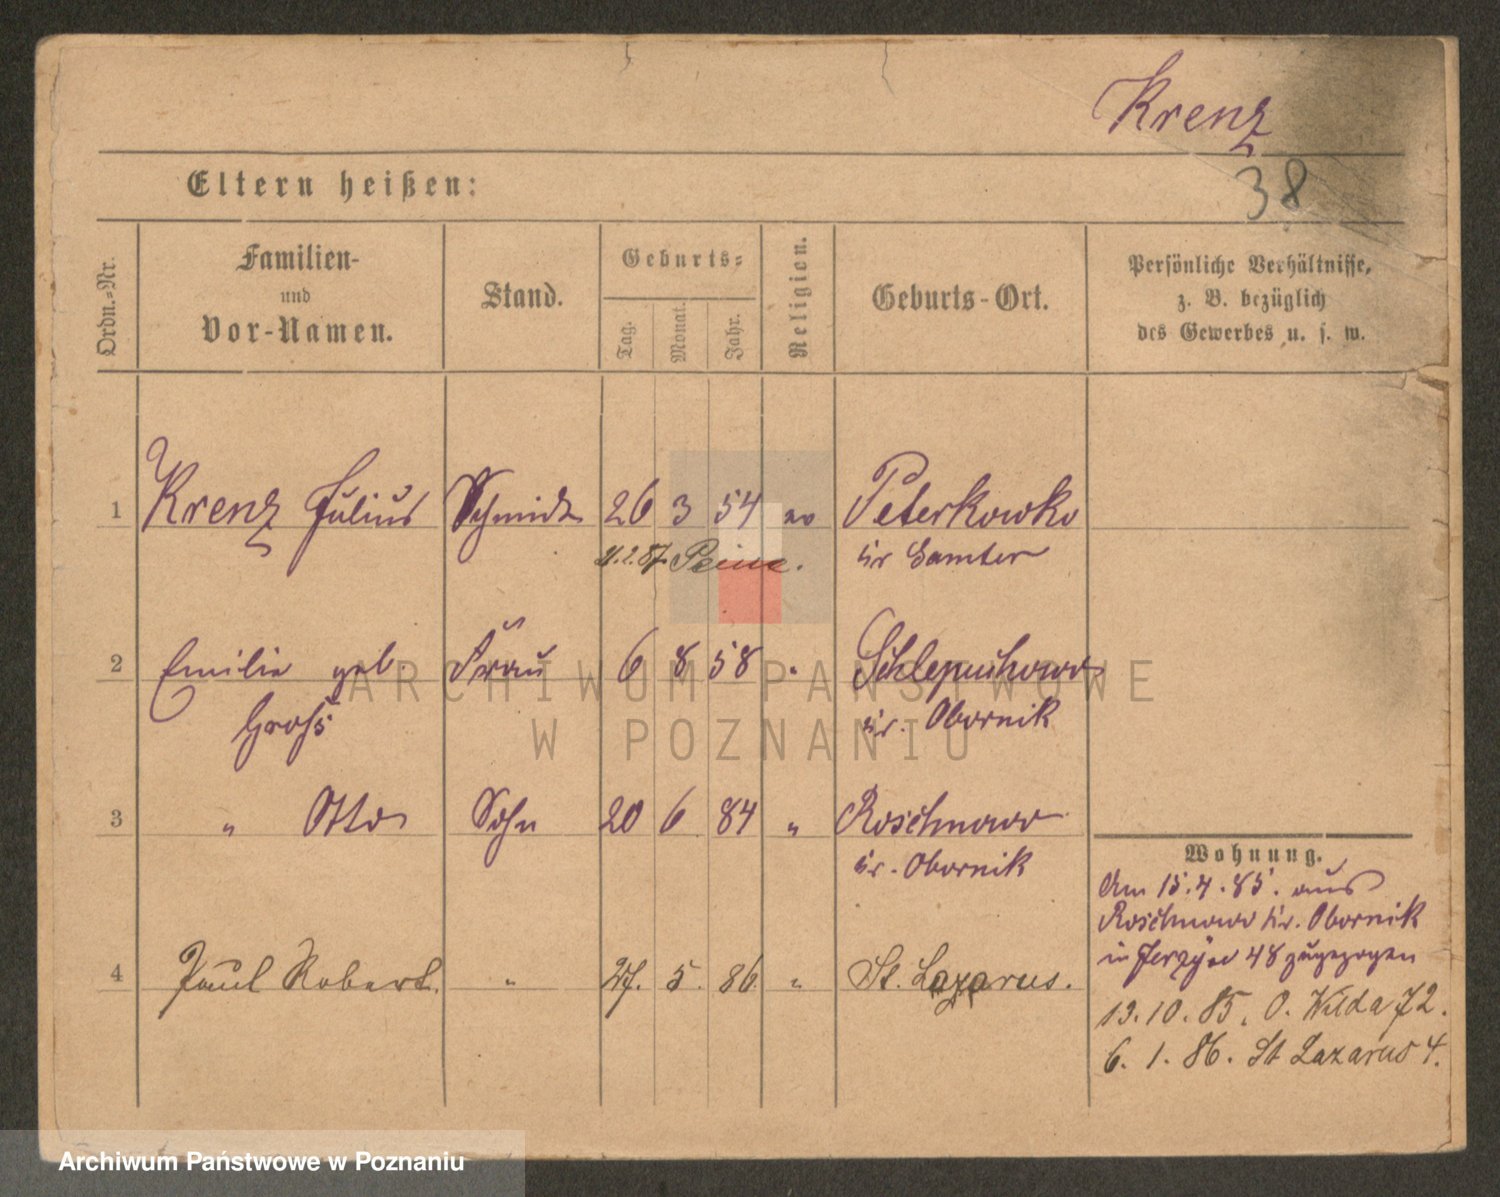 Krenz
38
Eltern heißen:
Ordn.-Nr.
Familien-
und
Vor-Namen.
Stand.
Geburts-
Tag.
Monat.
Jahr.
Religion.
Geburts-Ort.
Persönliche Verhältnisse,
z. B. bezüglich
des Gewerbes u. s. w.
1 Krenz Julius Schmidt 26 3 54 ev Peterkowko
Peine. Kr Samter
2 Emilie geb. Frau 6 8 58 " 
Groß Kr. Obornik
3 " Otto Sohn 20 6 84 " Roschnowo
Kr. Obornik
4 Paul Robert. " 27. 5. 86 " St. Lazarus.
Wohnung.
Am 15.4.85. aus
Roschnowo Kr. Obornik
in 48 zugezogen
13.10.85. O. Wilda 72.
6. 1. 86. St Lazarus 4.
ARCHIWUM PAŃSTWOWE
W POZNANIU
Archiwum Państwowe w Poznaniu